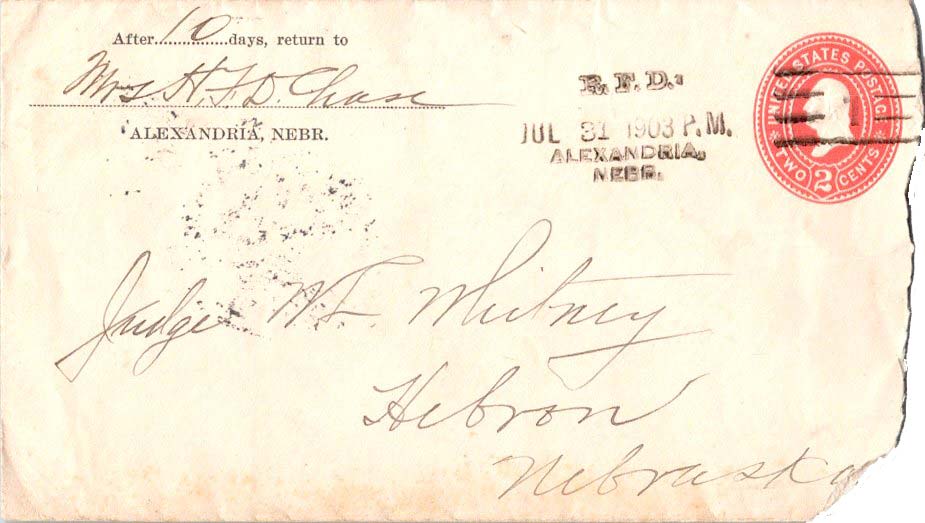 After 10 days, return to
Mrs. H. F. D. Chase
ALEXANDRIA, NEBR.
R. F. D.
JUL 31 1903 P.M.
ALEXANDRIA,
NEBR.
UNITED STATES POSTAGE
TWO 2 CENTS
1
Judge W F Whitney
Hebron
Nebraska